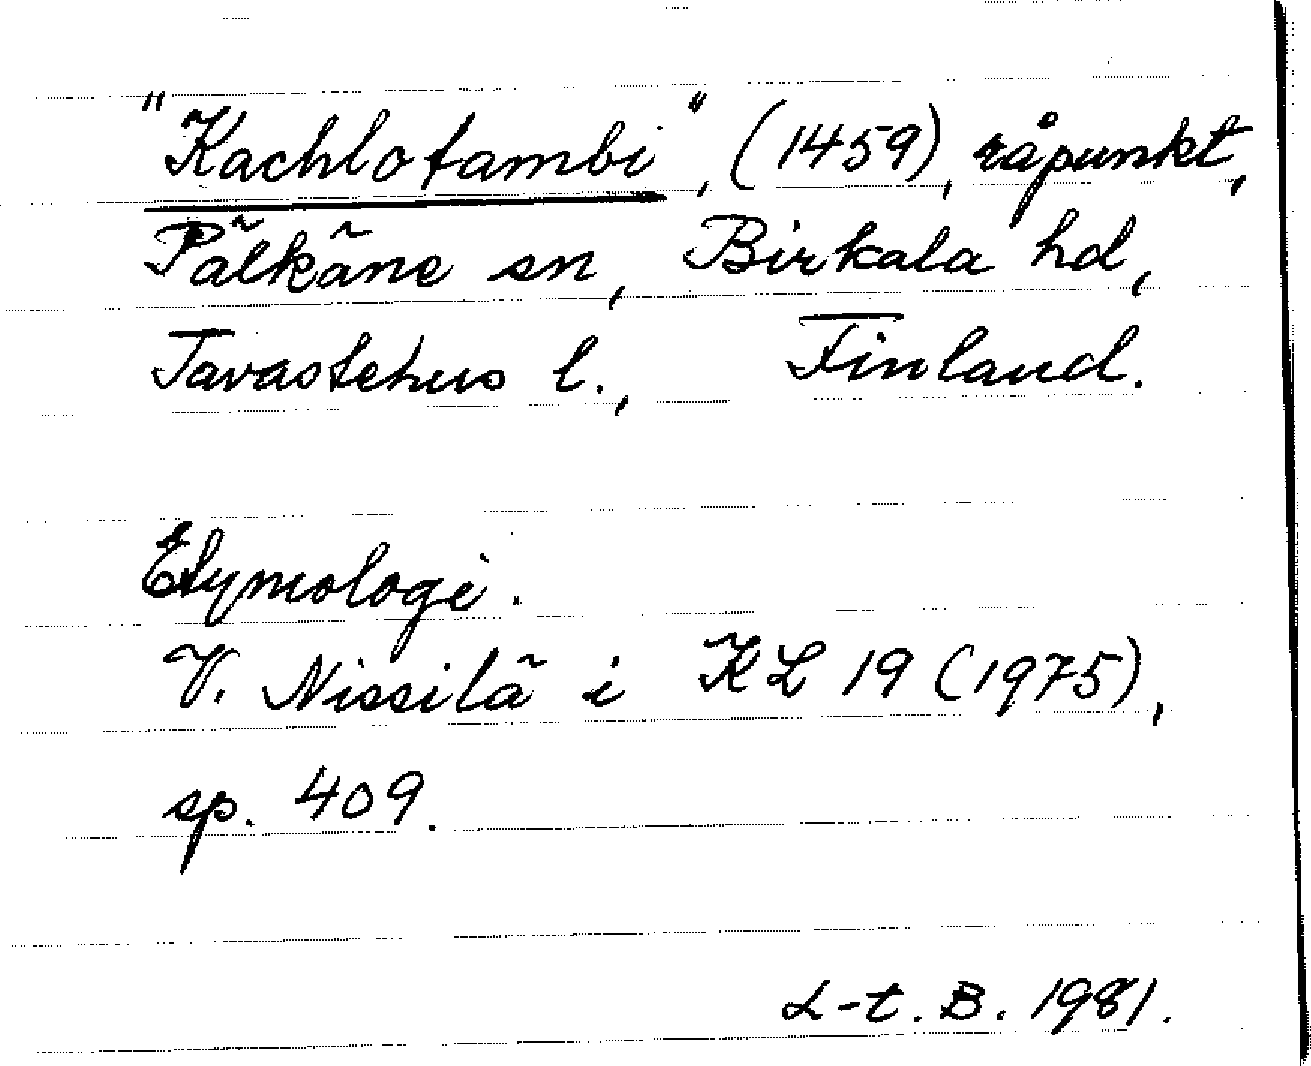 "Kachlotambi", (1459), råpunkt,
Pälkäne sn, Birkala hd,
Tavastehus l., Finland.
Etymologi.
V. Nissilä i KL 19 (1975),
sp. 409.
L-t. B. 1981.